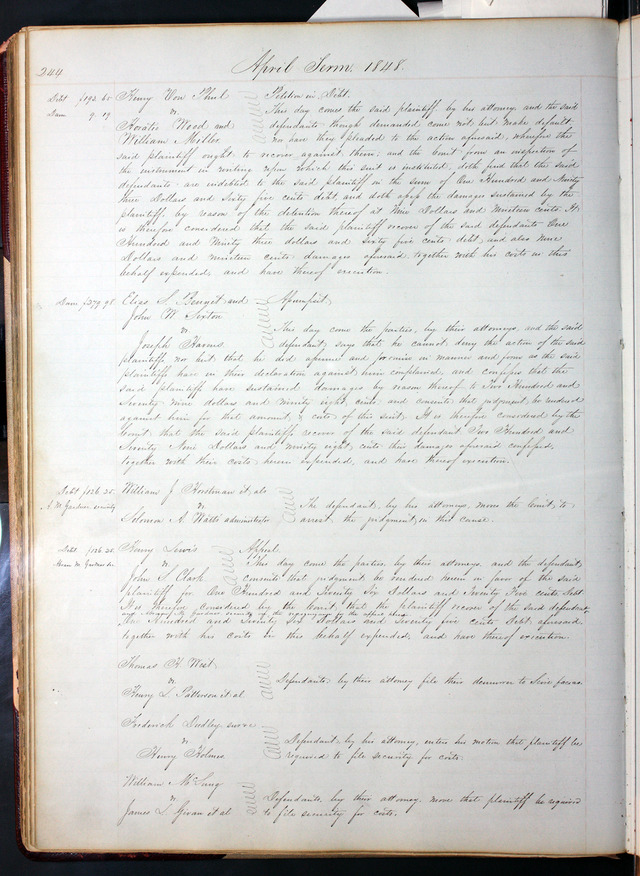 244
April Term. 1848.
Debt $193.65
Dam 9.19
Henry Von Phul
vs
Horatio Wood and
William Miller
Petition in Debt.
This day comes the said plaintiff by his attorney, and the said
defendants though demanded come not but make default,
nor have they pleaded to the action aforesaid, wherefore the
said plaintiff ought to recover against them; and the Court from an inspection of
the instrument in writing upon which this suit is instituted, doth find that the said
defendants are indebted to the said plaintiff in the sum of One Hundred and Ninety
three Dollars and Sixty five cents debt, and doth assess the damages sustained by the
plaintiff, by reason of the detention thereof at Nine Dollars and Nineteen cents. It
is therefore considered that the said plaintiff recover of the said defendants One
Hundred and Ninety three dollars and sixty five cents debt, and also nine
Dollars and nineteen cents damages aforesaid together with his costs in this
behalf expended, and have thereof execution.
Dam $279.98
Elias S. and
John W. Sexton
vs
Joseph
Assumpsit,
This day come the parties, by their attorneys, and the said
defendant, says that he cannot deny the action of the said
plaintiffs nor but that he did assume and promise in manner and form as the said
plaintiffs have in their declaration against him complained, and confesses that the
said plaintiffs have sustained damages by reason thereof to Two Hundred and
Seventy nine dollars and ninety eight cents and consents that judgment be rendered
against him for that amount, & costs of this suit. It is therefore considered by the
Court that the said plaintiffs recover of the said defendant Two Hundred and
Seventy Nine Dollars and ninety eight, cents their damages aforesaid confessed,
together with their costs herein expended, and have thereof execution.
Debt
A. M. Gardner security
William J. et, als
vs
Solomon A. Watts administrator
The defendant, by his attorneys, moves the Court, to
arrest, the judgment, in this cause.
Debt
Henry Lewis
vs
John S. Clark
Appeal
This day come the parties, by their attorneys, and the defendant,
consents that judgment be rendered herein in favor of the said
plaintiff for One Hundred and Seventy Six Dollars and Twenty Five cents Debt
It is therefore considered by the Court, that the plaintiff recover of the said defendant
Gardner, security
One Hundred and Seventy Six Dollars and Twenty five cents Debt, aforesaid.
together with his costs in this behalf expended, and have thereof execution.
Thomas H. West,
vs
Henry L. Patterson et al
Defendants, by their attorney file their demurrer to Scire facias.
Frederick Dudley
vs
Henry Holmes
Defendant, by his attorney, enters his motion that plaintiff be
required to file security for costs.
William McLung
vs
James L. Givan et al
Defendants, by their attorney move that plaintiff be required
to file security for costs.